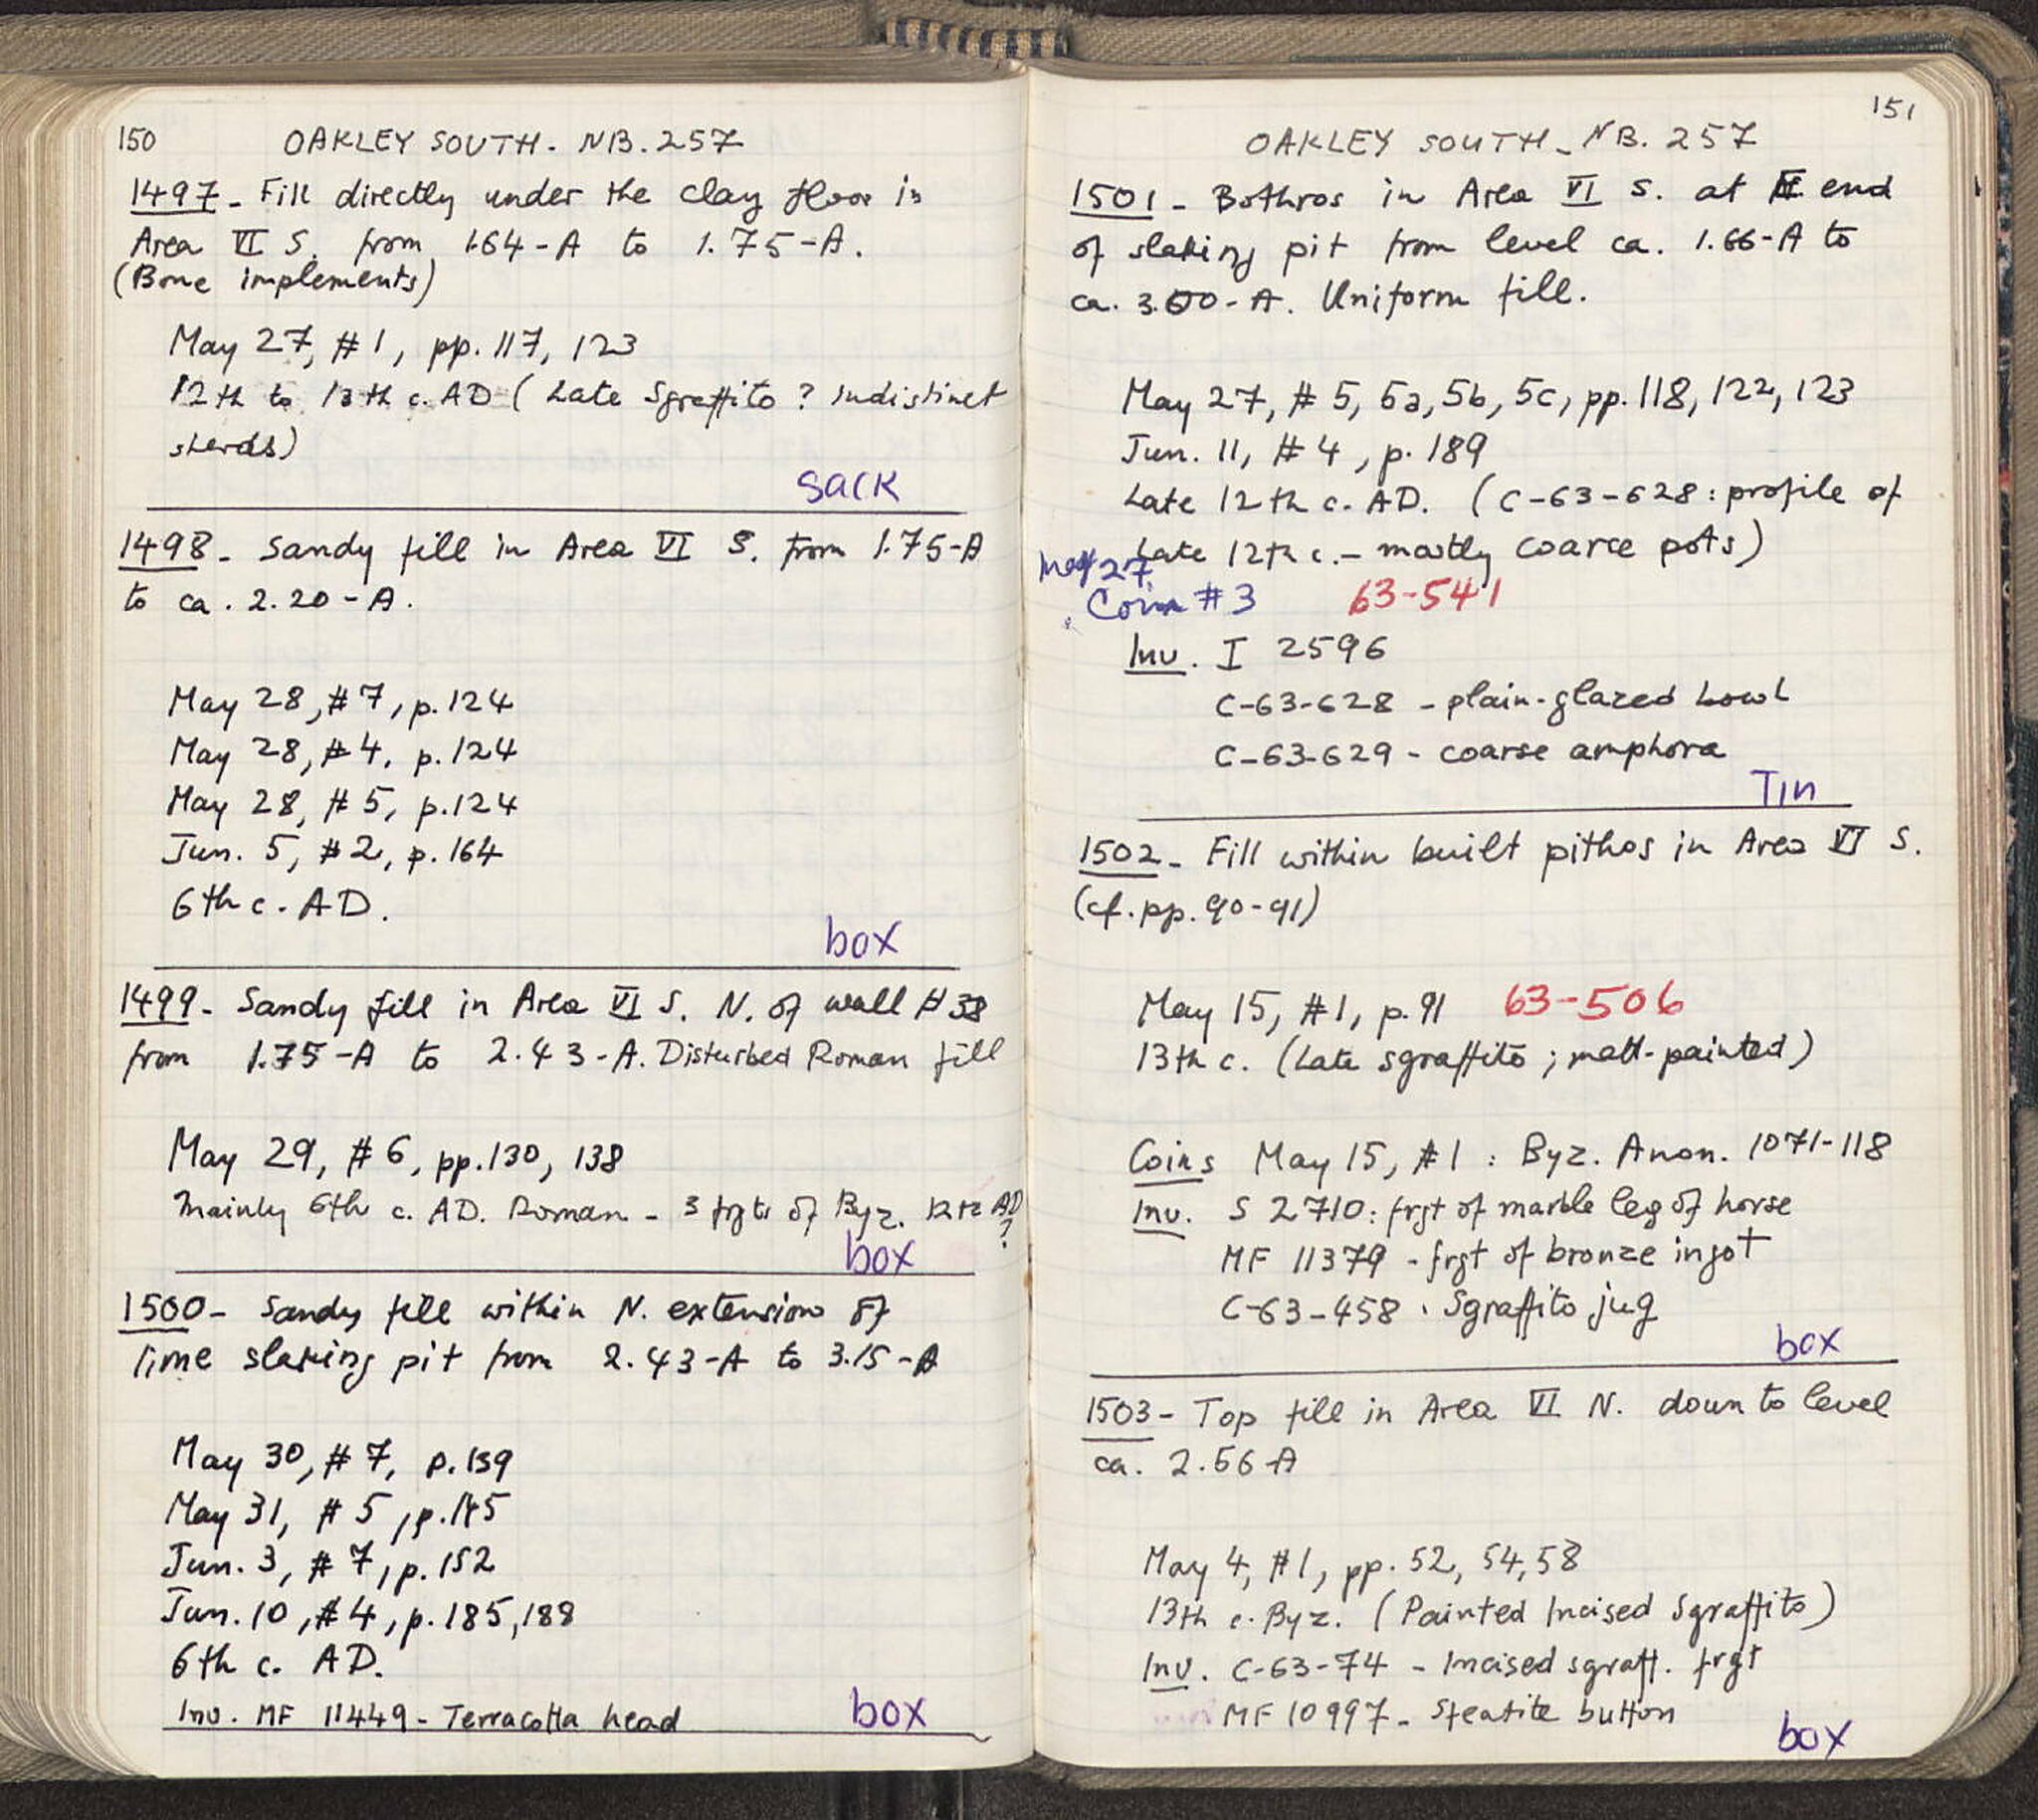 150
OAKLEY SOUTH - NB. 257
1497 - Fill directly under the clay floor in
Area VI S. from 1.64-A to 1.75-A.
(Bone implements)
May 27, #1, pp. 117, 123
12th to 13th c. AD (Late Sgraffito? indistinct
sherds)
sack
1498 - Sandy fill in Area VI S. from 1.75-A
to ca. 2.20-A.
May 28, #7, p. 124
May 28, #4, p. 124
May 28, #5, p. 124
Jun. 5, #2, p. 164
6th c. AD.
box
1499 - Sandy fill in Area VI S. N. of wall #38
from 1.75-A to 2.43-A. Disturbed Roman fill
May 29, #6, pp. 130, 138
Mainly 6th c. AD. Roman - 3 frgts of Byz. 12th AD
?
box
1500 - Sandy fill within N. extension of
lime slaking pit from 2.43-A to 3.15-A
May 30, #7, p. 139
May 31, #5, p. 145
Jun. 3, #7, p. 152
Jun. 10, #4, p. 185, 188
6th c. AD.
Inv. MF 11449 - Terracotta head
box
151
OAKLEY SOUTH - NB. 257
1501 - Bothros in Area VI S. at end
of slaking pit from level ca. 1.66-A to
ca. 3.60-A. Uniform fill.
May 27, #5, 5a, 5b, 5c, pp. 118, 122, 123
Jun. 11, #4, p. 189
Late 12th c. AD. (C-63-628: profile of
Late 12th c. - mostly coarce pots)
May 27
Coin #3 63-541
Inv. I 2596
C-63-628 - plain-glazed bowl
C-63-629 - coarse amphora
Tin
1502 - Fill within built pithos in Area VI S.
(cf. pp. 90-91)
May 15, #1, p. 91 63-506
13th c. (Late sgraffito; matt-painted)
Coins May 15, #1: Byz. Anon. 1071-118
Inv. S 2710: frgt of marble leg of horse
MF 11379 - frgt of bronze ingot
C-63-458: Sgraffito jug
box
1503 - Top fill in Area VI N. down to level
ca. 2.56-A
May 4, #1, pp. 52, 54, 58
13th c. Byz. (Painted Incised Sgraffito)
Inv. C-63-74 - Incised sgraff. frgt
MF 10997 - Steatite button
box